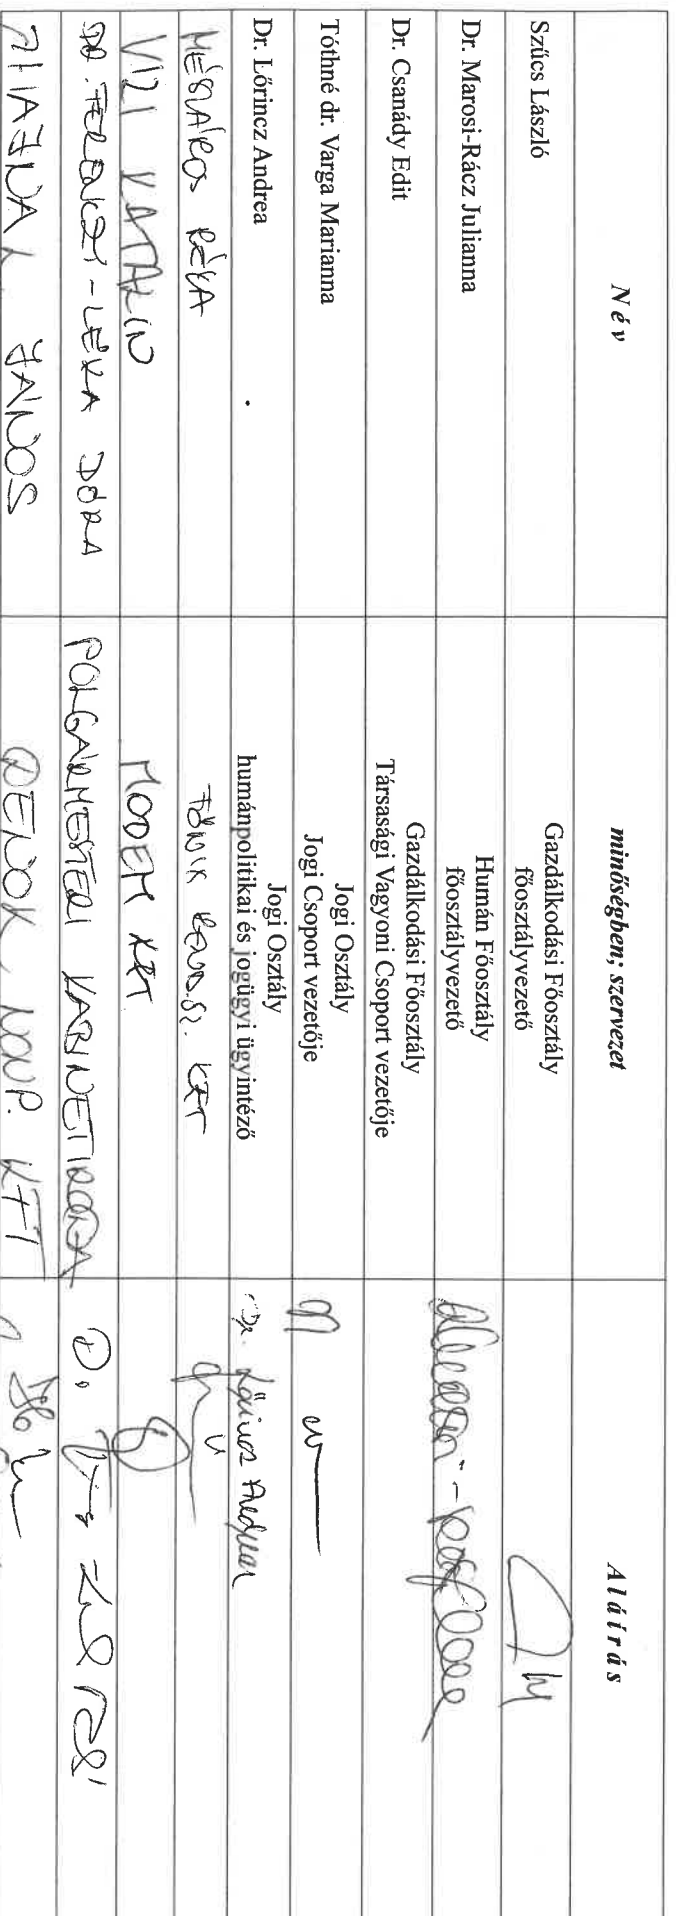 Név minőségben; szervezet Aláírás
Szűcs László Gazdálkodási Főosztály
főosztályvezető
Dr. Marosi-Rácz Julianna Humán Főosztály
főosztályvezető
Dr. Csanády Edit Gazdálkodási Főosztály
Társasági Vagyoni Csoport vezetője
Tóthné dr. Varga Marianna Jogi Osztály
Jogi Csoport vezetője
Dr. Lőrincz Andrea Jogi Osztály
humánpolitikai és jogügyi ügyintéző Dr. Lőrincz Andrea
MÉSZÁROS RÉKA FŐNIX REND.SZ. KFT
VIZI KATALIN MODEM KFT
DR. FERENCZI-LÉKA DÓRA POLGÁRMESTERI KABINETIRODA
JÁNOS KFT